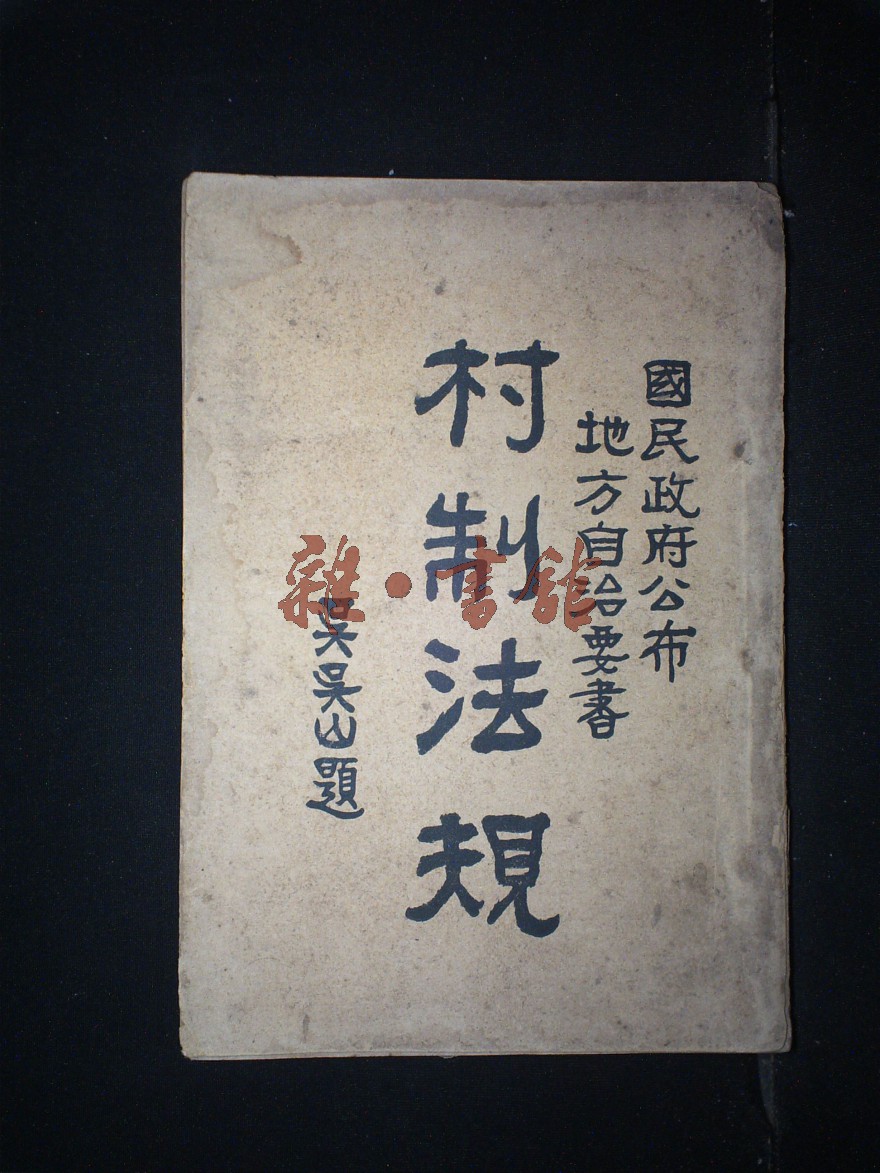 國民政府公布
地方自治要書
村制法規
吳吳山題
雜·書館